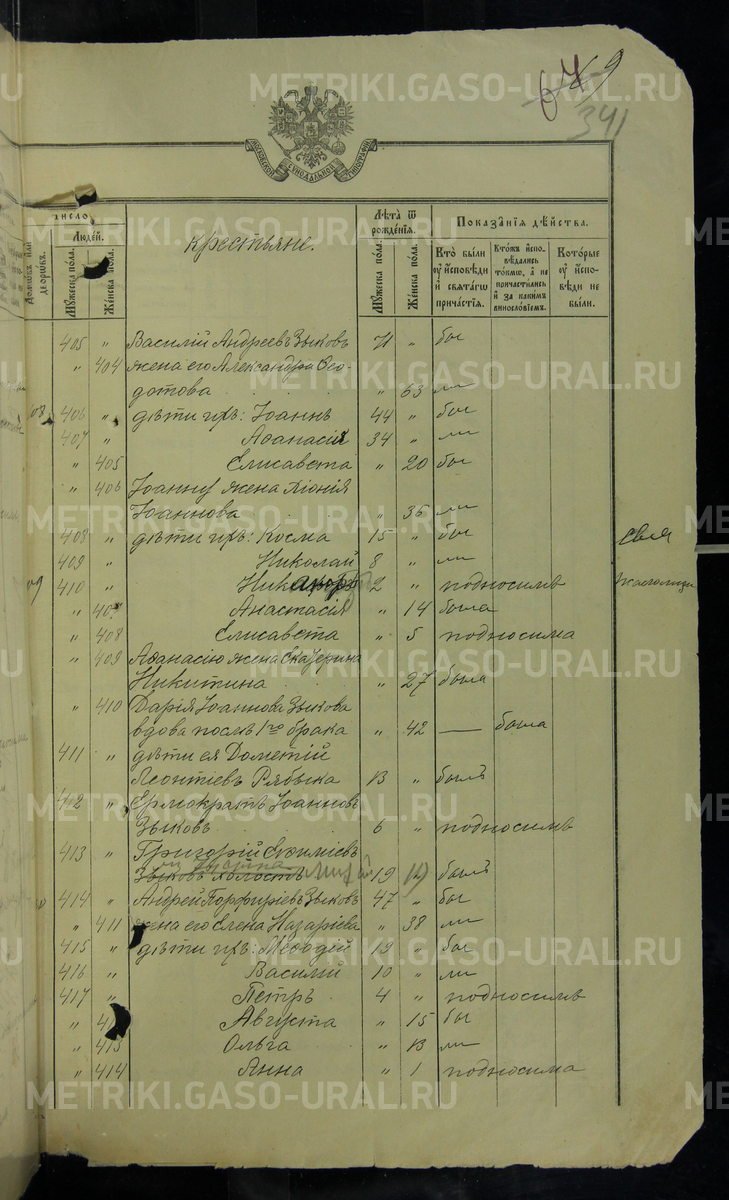 METRIKI.GASO-URAL.RU
679
341
МОСКОВСКОЙ СѴНОДАЛЬНОЙ ТИПОГРАФІИ
Число
Людей.
Мꙋжеска пола.
Женска пола.
дворѡвъ.
крестьяне.
Лѣта ѿ рожденїѧ.
Мꙋжеска пола.
Женска пола.
Показанїѧ дѣйства.
Кто были ᲂу҆ исповѣди и свѧтагѡ причастїѧ.
Ктожъ исповѣдались токмѡ, а не причастились и за какимъ винословїемъ.
Которые ᲂу҆ исповѣди не были.
405 " Василій Андреевъ Зыковъ 71 " бы
" 404 жена его Александра Ѳео-
дотова " 63 ли
406 " дѣти ихъ: Іоаннъ 44 " бы
407 " Аѳанасій 34 " ли
" 405 Елисавета " 20 бы
" 406 Іоанну жена Хіонія
Іоаннова " 36 ли
408 " дѣти ихъ: Косма 15 " бы
409 " Николай 8 " ли
410 " Никаноръ 2 " подносимъ
" 407 Анастасія " 14 была
" 408 Елисавета " 5 подносима
" 409 Аѳанасію жена Екатерина
Никитина " 27 была
" 410 Дарія Іоаннова Зыкова
вдова послѣ 1го брака " 42 — была
411 " дѣти ея Дометій
Леонтіевъ Рябыка 13 " былъ
412 " Ермократъ Іоанновъ
Зыковъ 6 " подносимъ
413 " Григорій Евѳиміевъ
Зыковъ холостъ 19 былъ
414 " Андрей Порфиріевъ Зыковъ 47 " бы
" 411 жена его Елена Назаріева " 38 ли
415 " дѣти ихъ: Меѳодій 19 " бы
416 " Василій 10 " ли
417 " Петръ 4 " подносимъ
" Августа " 15 бы
" 413 Ольга " 13 ли
" 414 Анна " 1 подносима